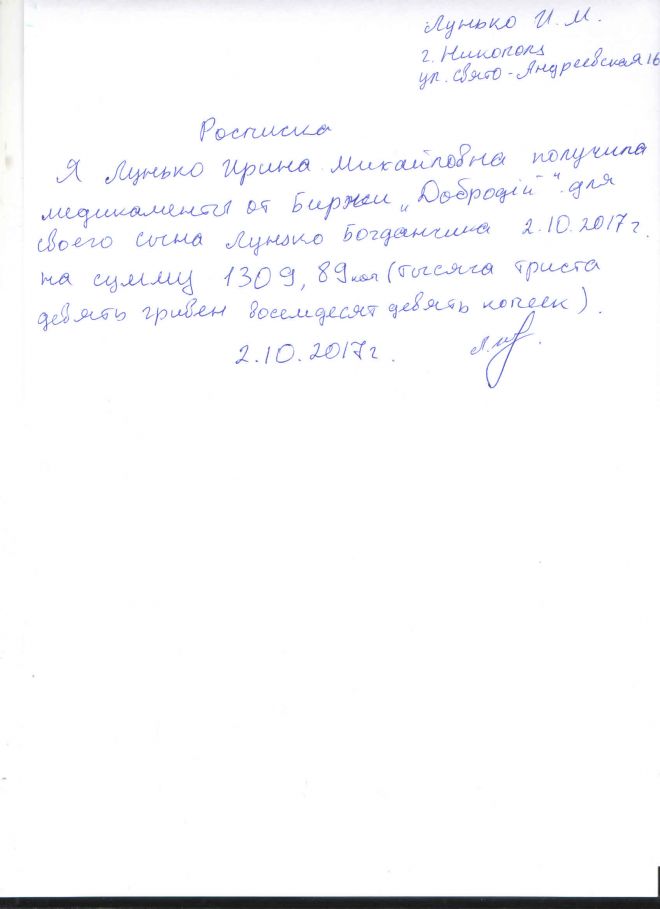 Лунько И. М.
г. Никополь
ул. Свято-Андреевская 16
Росписка
Я Лунько Ирина Михайловна получила
медикаменты от Биржи „Добродiй“ для
своего сына Лунько Богданчика 2.10.2017г.
на сумму 1309,89коп (тысяча триста
девять гривен восемдесят девять копеек).
2.10.2017г.